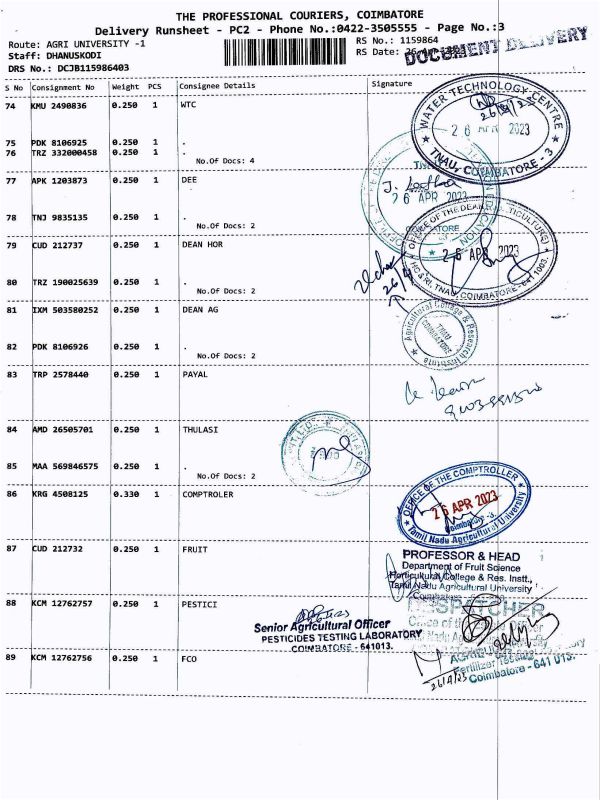 THE PROFESSIONAL COURIERS, COIMBATORE
Delivery Runsheet - PC2 - Phone No.:0422-3505555 - Page No.:3
Route: AGRI UNIVERSITY -1
RS No.: 1159864
Staff: DHANUSKODI
RS Date:
DOCUMENT DELIVERY
DRS No.: DCJB115986403
S No Consignment No Weight PCS Consignee Details Signature
74 KMU 2490836 0.250 1 WTC
WATER TECHNOLOGY CENTRE
26 APR 2023
TNAU, COIMBATORE - 3
75 PDK 8106925 0.250 1 .
76 TRZ 332000458 0.250 1 .
No.Of Docs: 4
77 APK 1203873 0.250 1 DEE
26 APR 2023
78 TNJ 9835135 0.250 1 .
No.Of Docs: 2
79 CUD 212737 0.250 1 DEAN HOR
26 APR 2023
HC & RI, TNAU, COIMBATORE - 641 003.
80 TRZ 190025639 0.250 1 .
No.Of Docs: 2
81 IXM 503580252 0.250 1 DEAN AG
Agricultural College & Research Institute
TNAU
COIMBATORE
82 PDK 8106926 0.250 1 .
No.Of Docs: 2
83 TRP 2578440 0.250 1 PAYAL
84 AMD 26505701 0.250 1 THULASI
85 MAA 569846575 0.250 1 .
No.Of Docs: 2
86 KRG 4508125 0.330 1 COMPTROLER
OFFICE OF THE COMPTROLLER
26 APR 2023
Coimbatore -3.
Tamil Nadu Agricultural University
87 CUD 212732 0.250 1 FRUIT
PROFESSOR & HEAD
Department of Fruit Science
Horticultural College & Res. Instt.,
Tamil Nadu Agricultural University
88 KCM 12762757 0.250 1 PESTICI
DESPATCHER
Senior Agricultural Officer
PESTICIDES TESTING LABORATORY
COIMBATORE - 641013.
89 KCM 12762756 0.250 1 FCO
26/4/23
Coimbatore - 641 013.